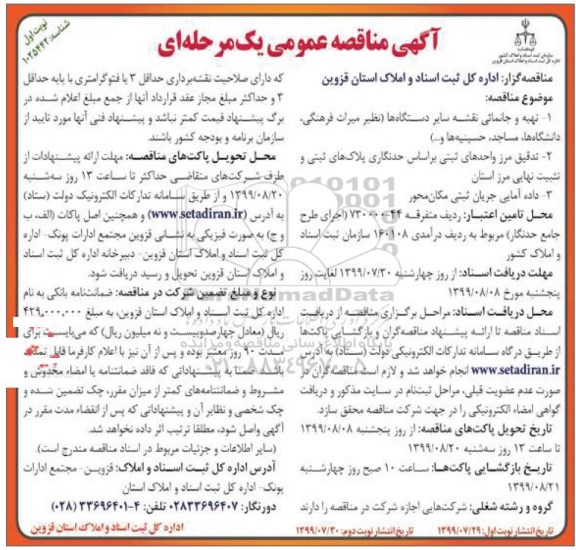 نوبت اول
شناسه: ۱۰۲۵۴۴۳
آگهی مناقصه عمومی یک‌مرحله‌ای
قوه قضاییه
سازمان ثبت اسناد و املاک کشور
اداره کل ثبت اسناد و املاک استان قزوین
مناقصه‌گزار: اداره کل ثبت اسناد و املاک استان قزوین
موضوع مناقصه:
۱- تهیه و جانمائی نقشه سایر دستگاه‌ها (نظیر میراث فرهنگی،
دانشگاه‌ها، مساجد، حسینیه‌ها و...)
۲- تدقیق مرز واحدهای ثبتی براساس حدنگاری پلاک‌های ثبتی و
تثبیت نهایی مرز استان
۳- داده آمایی جریان ثبتی مکان‌محور
محل تامین اعتبار: ردیف متفرقه ۴۴-۷۳۰۰۰۰ (اجرای طرح
جامع حدنگار) مربوط به ردیف درآمدی ۱۶۰۱۰۸ سازمان ثبت اسناد
و املاک کشور
مهلت دریافت اسناد: از روز چهارشنبه ۱۳۹۹/۰۷/۳۰ لغایت روز
پنجشنبه مورخ ۱۳۹۹/۰۸/۰۸
محل دریافت اسناد: مراحل برگزاری مناقصه از دریافت
اسناد مناقصه تا ارائه پیشنهاد مناقصه‌گران و بازگشایی پاکت‌ها
از طریق درگاه سامانه تدارکات الکترونیکی دولت (ستاد) به آدرس
www.setadiran.ir انجام خواهد شد و لازم است مناقصه‌گران در
صورت عدم عضویت قبلی، مراحل ثبت‌نام در سایت مذکور و دریافت
گواهی امضاء الکترونیکی را در جهت شرکت مناقصه محقق سازد.
تاریخ تحویل پاکت‌های مناقصه: از روز پنجشنبه ۱۳۹۹/۰۸/۰۸
تا ساعت ۱۳ روز سه‌شنبه ۱۳۹۹/۰۸/۲۰
تاریخ بازگشایی پاکت‌ها: ساعت ۱۰ صبح روز چهارشنبه
۱۳۹۹/۰۸/۲۱
گروه و رشته شغلی: شرکت‌هایی اجازه شرکت در مناقصه را دارند
که دارای صلاحیت نقشه‌برداری حداقل ۳ یا فتوگرامتری با پایه حداقل
۳ و حداکثر مبلغ مجاز عقد قرارداد آنها از جمع مبلغ اعلام شده در
برگ پیشنهاد قیمت کمتر نباشد و پیشنهاد فنی آنها مورد تایید از
سازمان برنامه و بودجه کشور باشند.
محل تحویل پاکت‌های مناقصه: مهلت ارائه پیشنهادات از
طرف شرکت‌های متقاضی حداکثر تا ساعت ۱۳ روز سه‌شنبه
۱۳۹۹/۰۸/۲۰ و از طریق سامانه تدارکات الکترونیک دولت (ستاد)
به آدرس (www.setadiran.ir) و همچنین اصل پاکات (الف، ب
و ج) به صورت فیزیکی به نشانی قزوین مجتمع ادارات پونک- اداره
کل ثبت اسناد و املاک استان قزوین- دبیرخانه اداره کل ثبت اسناد
و املاک استان قزوین تحویل و رسید دریافت شود.
نوع و مبلغ تضمین شرکت در مناقصه: ضمانت‌نامه بانکی به نام
اداره کل ثبت اسناد و املاک استان قزوین، به مبلغ ۴۲۹,۰۰۰,۰۰۰
ریال (معادل چهارصدوبیست و نه میلیون ریال) که می‌بایست برای
مدت ۹۰ روز معتبر بوده و پس از آن نیز با اعلام کارفرما قابل تمدید
باشد. ضمنا به پیشنهاداتی که فاقد ضمانتنامه یا امضاء مخدوش و
مشروط و ضمانتنامه‌های کمتر از میزان مقرر، چک تضمین شده و
چک شخصی و نظایر آن و پیشنهاداتی که پس از انقضاء مدت مقرر در
آگهی واصل شود، مطلقا ترتیب اثر داده نخواهد شد.
(سایر اطلاعات و جزئیات مربوط در اسناد مناقصه مندرج است).
آدرس اداره کل ثبت اسناد و املاک: قزوین- مجتمع ادارات
پونک- اداره کل ثبت اسناد و املاک استان
دورنگار: ۰۲۸۳۳۶۹۶۴۰۷ تلفن: ۴-۳۳۶۹۶۴۰۱ (۰۲۸)
تاریخ انتشار نوبت اول: ۱۳۹۹/۰۷/۲۹ تاریخ انتشار نوبت دوم: ۱۳۹۹/۰۷/۳۰
اداره کل ثبت اسناد و املاک استان قزوین